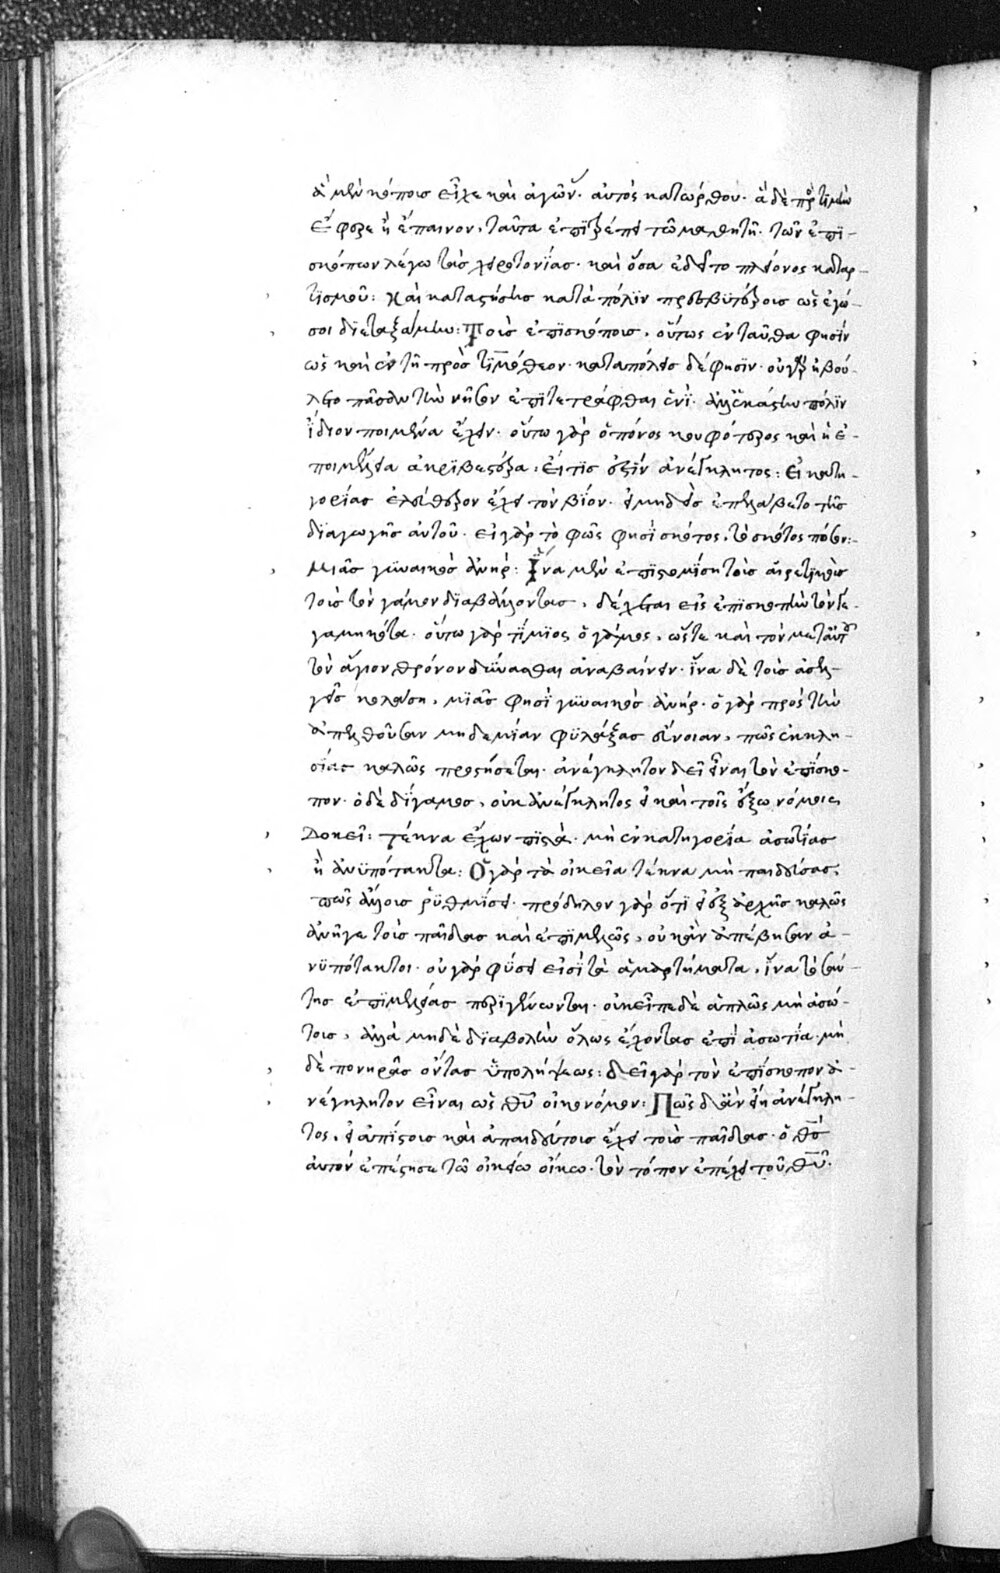 ἃ μὲν κόπους εἶχε καὶ ἀγῶν· αὐτὸς κατώρθου· ἃ δὲ πρὸς τιμὴν
ἔφερε ἢ ἔπαινον, ταῦτα ἐπιτρέπει τῷ μαθητῇ· τῶν ἐπι-
σκόπων λέγω τὰς χειροτονίας· καὶ ὅσα ἐδεῖτο πλείονος καταρ-
τισμοῦ: Καὶ καταστήσῃς κατὰ πόλιν πρεσβυτέρους ὡς ἐγώ
σοι διεταξάμην: Τοὺς ἐπισκόπους, οὕτως ἐνταῦθα φησὶν
ὡς καὶ ἐν τῇ πρὸς τιμόθεον· κατὰ πόλεις δέ φησιν· οὐ γὰρ ἠβού-
λετο πᾶσαν τὴν νῆσον ἐπιτετράφθαι ἑνί· ἀλλ' ἑκάστην πόλιν
ἴδιον ποιμένα ἔχειν· οὕτω γὰρ ὁ πόνος κουφότερος καὶ ἡ ἐ-
πιμέλεια ἀκριβεστέρα: Εἴ τις ἐστὶν ἀνέγκλητος: Εἰ κατη-
γορίας ἐλεύθερον ἔχει τὸν βίον· εἰ μηδεὶς ἐπελάβετο τῆς
διαγωγῆς αὐτοῦ· εἰ γὰρ τὸ φῶς φησὶ σκότος, τὸ σκότος πόσον:
Μιᾶς γυναικὸς ἀνήρ: Ἵνα μὲν ἐπιστομίσῃ τοὺς αἱρετικοὺς
τοὺς τὸν γάμον διαβάλλοντας, δέχεται εἰς ἐπισκοπὴν τὸν γε-
γαμηκότα· οὕτω γὰρ τίμιος ὁ γάμος, ὥστε καὶ τὸν μετ' αὐτοῦ
τὸν ἅγιον θρόνον δύνασθαι ἀναβαίνειν· ἵνα δὲ τοὺς ἀσελ-
γεῖς κολάσῃ, μιᾶς φησὶ γυναικὸς ἀνήρ· ὁ γὰρ πρὸς τὴν
ἀπελθοῦσαν μηδεμίαν φυλάξας εὔνοιαν, πῶς ἐκκλη-
σίας καλῶς προστήσεται· ἀνέγκλητον δεῖ εἶναι τὸν ἐπίσκο-
πον· ὁ δὲ δίγαμος, οὐκ ἀνέγκλητος εἰ καὶ τοῖς ἔξω νόμοις
δοκεῖ: Τέκνα ἔχων πιστά· μὴ ἐν κατηγορίᾳ ἀσωτίας
ἢ ἀνυπότακτα: Ὁ γὰρ τὰ οἰκεῖα τέκνα μὴ παιδεύσας,
πῶς ἄλλους ῥυθμίσει· πρόδηλον γὰρ ὅτι εἰ ἐξ ἀρχῆς καλῶς
ἀνῆγε τοὺς παῖδας καὶ ἐπιμελῶς, οὐκ ἂν ἀπέβησαν ἀ-
νυπότακτοι· οὐ γὰρ φύσει εἰσὶ τὰ ἁμαρτήματα, ἵνα τοσαύ-
της ἐπιμελείας περιγένωνται· οὐκ εἶπε δὲ ἁπλῶς μὴ ἀσώ-
τους, ἀλλὰ μηδὲ διαβολὴν ὅλως ἔχοντας ἐπὶ ἀσωτίᾳ· μη-
δὲ πονηρᾶς ὄντας ὑπολήψεως: δεῖ γὰρ τὸν ἐπίσκοπον ἀ-
νέγκλητον εἶναι ὡς θυ οἰκονόμον: Πῶς δ' ἂν εἴη ἀνέγκλη-
τος, εἰ ἀπίστους καὶ ἀπαιδεύτους ἔχει τοὺς παῖδας· ὁ θς
αὐτὸν ἐπέστησε τῷ οἰκείῳ οἴκῳ· τὸν τόπον ἐπέχει τοῦ θυ·